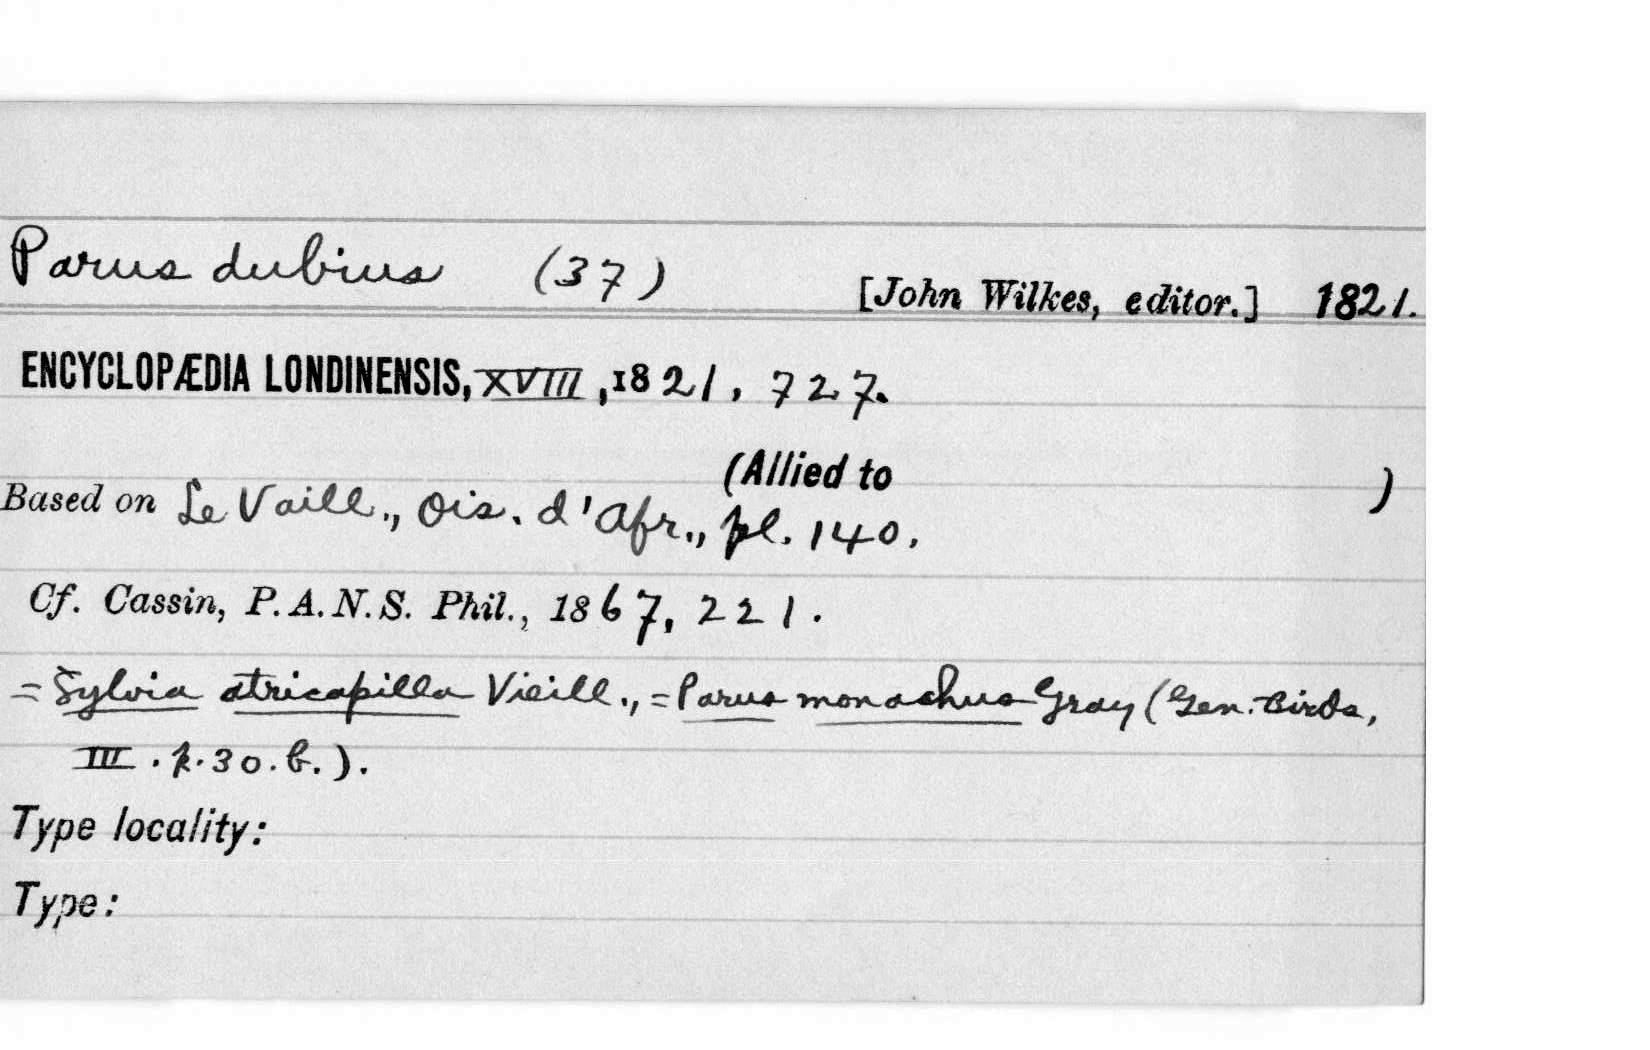 Parus dubius (37) [John Wilkes, editor.] 1821.
ENCYCLOPÆDIA LONDINENSIS, XVIII, 1821, 727.
(Allied to )
Based on Le Vaill., Ois. d'Afr., pl. 140.
Cf. Cassin, P.A.N.S. Phil., 1867, 221.
= Sylvia atricapilla Vieill., = Parus monachus Gray (Gen. Birds,
III. p. 30. b.).
Type locality:
Type: